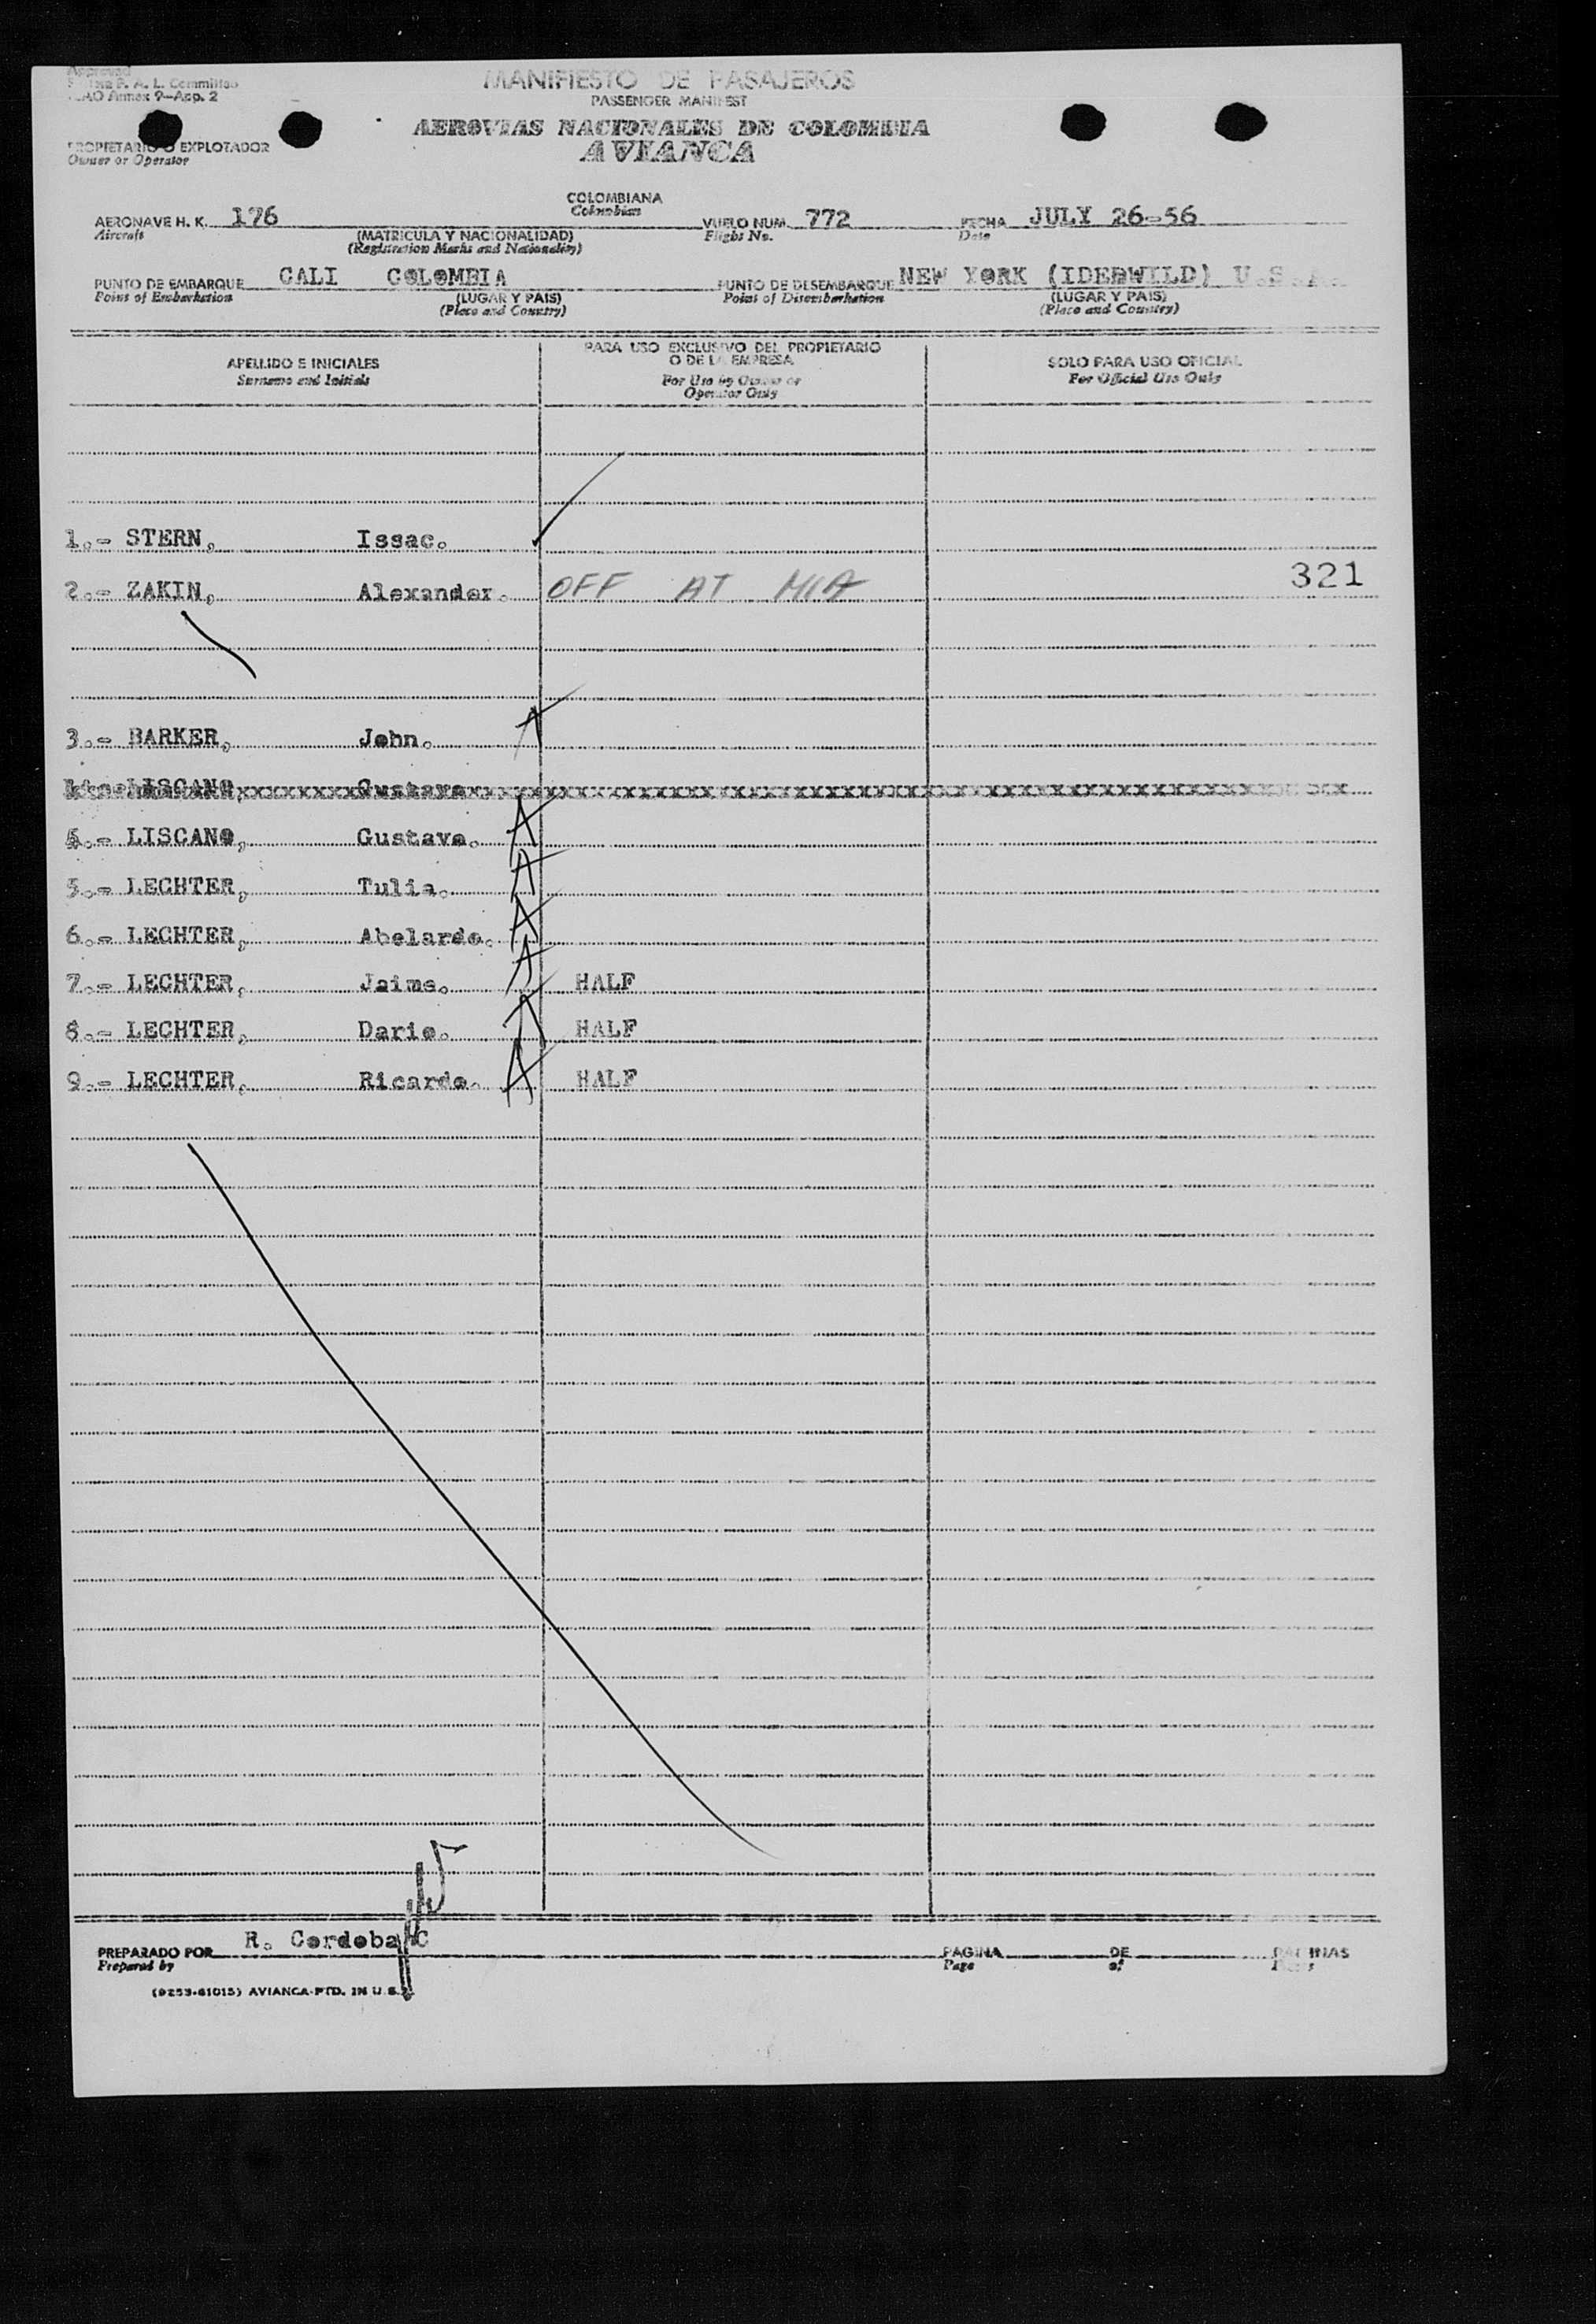 Approved
F. A. L. Committee
ICAO Annex 9—App. 2
MANIFIESTO DE PASAJEROS
PASSENGER MANIFEST
AEROVIAS NACIONALES DE COLOMBIA
AVIANCA
PROPIETARIO O EXPLOTADOR
Owner or Operator
COLOMBIANA
Colombian
AERONAVE H. K. 176 VUELO NUM. 772 FECHA JULY 26-56
Aircraft (MATRICULA Y NACIONALIDAD) Flight No. Date
(Registration Marks and Nationality)
PUNTO DE EMBARQUE CALI COLOMBIA PUNTO DE DESEMBARQUE NEW YORK (IDEBWILD) U.S.A.
Point of Embarkation (LUGAR Y PAIS) Point of Disembarkation (LUGAR Y PAIS)
(Place and Country) (Place and Country)
APELLIDO E INICIALES PARA USO EXCLUSIVO DEL PROPIETARIO O DE LA EMPRESA SOLO PARA USO OFICIAL
Surname and Initials For Use by Owner or Operator Only For Official Use Only
1.- STERN, Issac.
2.- ZAKIN, Alexander. OFF AT MIA 321
3.- BARKER, John.
LISCANO, Gustavo
4.- LISCANO, Gustavo.
5.- LECHTER, Tulia.
6.- LECHTER, Abelardo.
7.- LECHTER, Jaime. HALF
8.- LECHTER, Dario. HALF
9.- LECHTER, Ricardo. HALF
PREPARADO POR R. Cordoba C PAGINA DE PAGINAS
Prepared by Page of Pages
(9253-61015) AVIANCA-PTD. IN U.S.A.